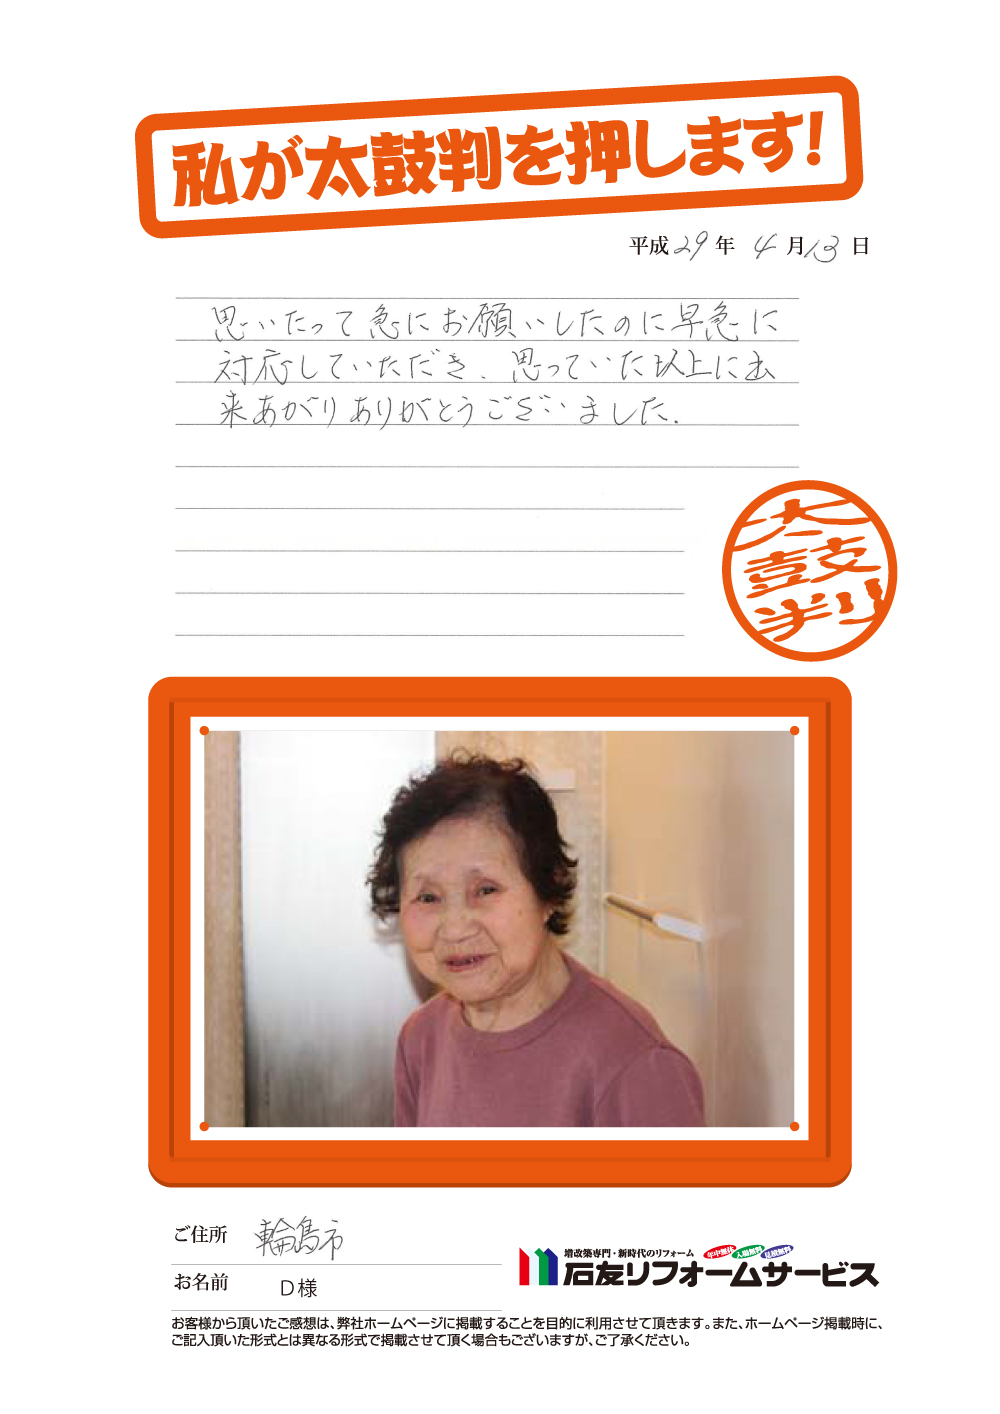 私が太鼓判を押します!
平成29年 4月13日
思いたって急にお願いしたのに早急に
対応していただき、思っていた以上に出
来あがりありがとうございました.
太鼓判
ご住所 輪島市
お名前 D様
増改築専門・新時代のリフォーム 年中無休 入場無料 見積無料
石友リフォームサービス
お客様から頂いたご感想は、弊社ホームページに掲載することを目的に利用させて頂きます。また、ホームページ掲載時に、
ご記入頂いた形式とは異なる形式で掲載させて頂く場合もございますが、ご了承ください。